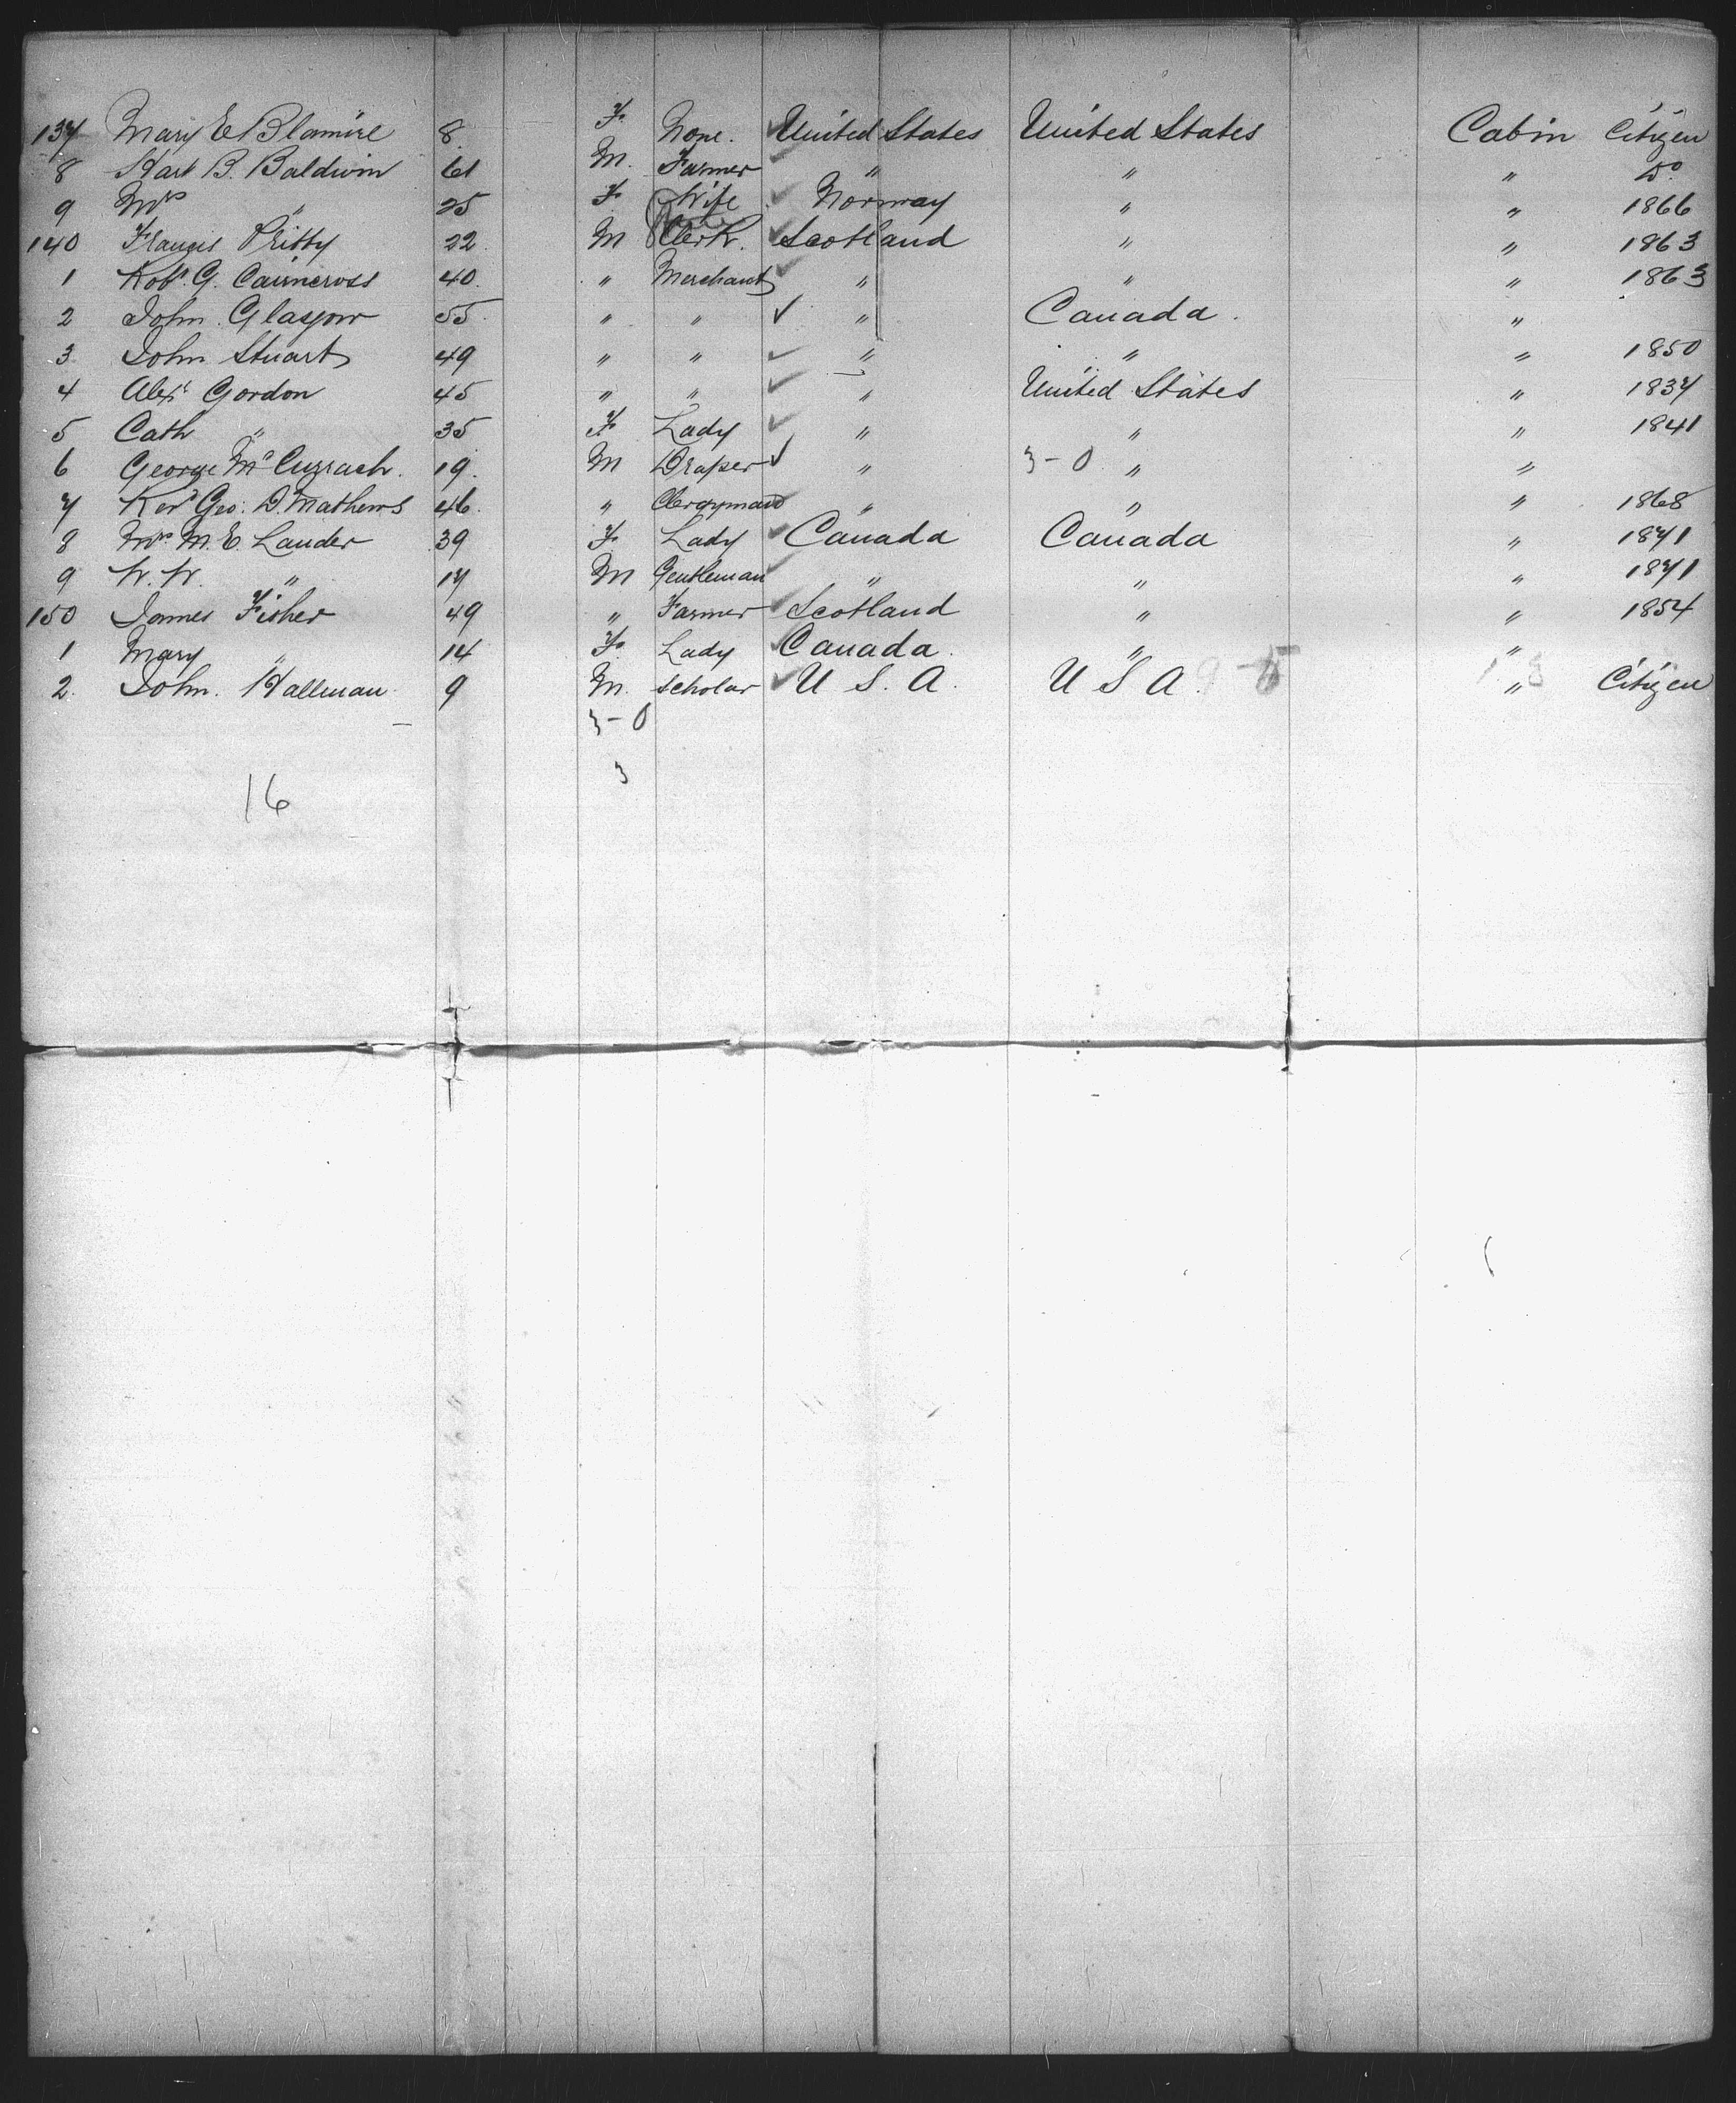 137 Mary E Blamire 8 F. None. United States United States Cabin Citizen
8 Hart B. Baldwin 61 M. Farmer " " " Do
9 Mrs " 25 F. Wife Norway " " 1866
140 Francis Pritty 22 M Clerk. Scotland " " 1863
1 Robt. G. Cairncross 40. " Merchant " " " 1863
2 John Glasgow 55 " " " Canada. "
3 John Stuart 49 " " " " " 1850
4 Alexr Gordon 45 " " " United States " 1837
5 Cath " 35 F. Lady " " " 1841
6 George Mc Currach. 19. M Draper " 3-0 " "
7 Revd Geo: D. Mathews 46. " Clergyman " " " 1868
8 Mrs M. E. Lauder 39 F. Lady Canada Canada " 1871
9 W. W. " 17 M Gentleman " " " 1871
150 James Fisher 49 " Farmer Scotland " " 1854
1 Mary " 14 F. Lady Canada. " "
2. John. Hallman 9 M. Scholar U. S. A. U S A. " Citizen
3-0
3
16